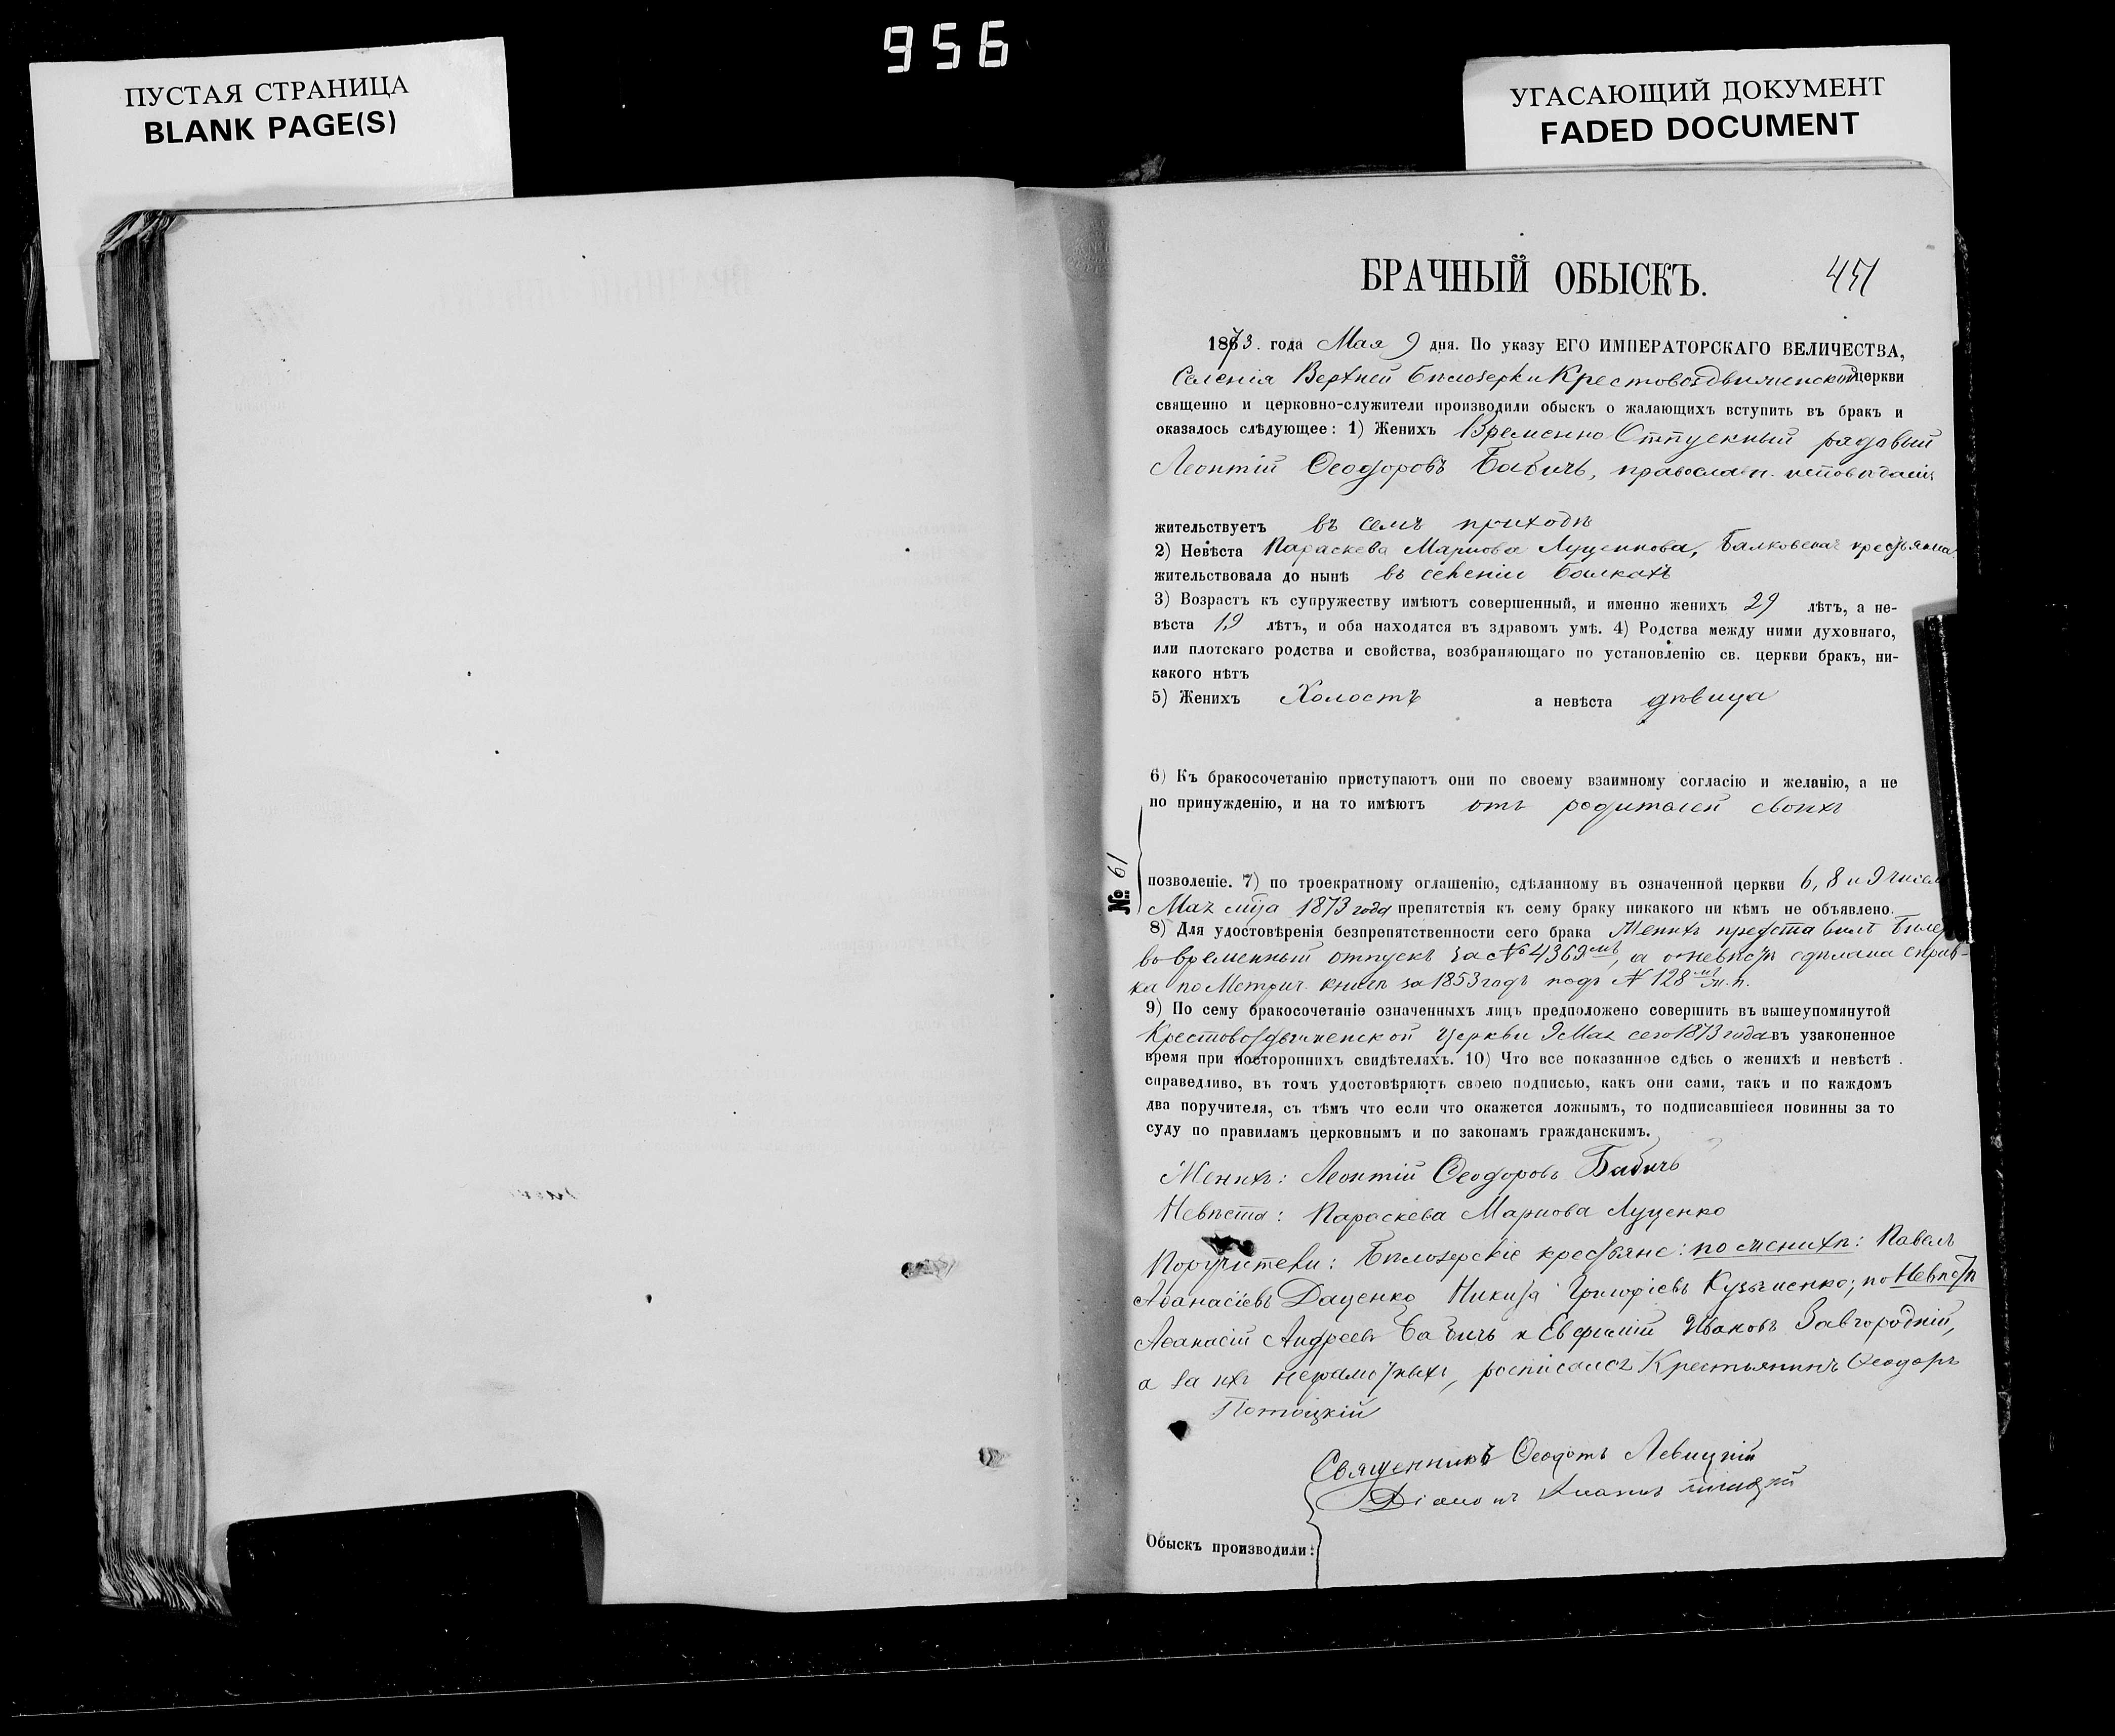 956
ПУСТАЯ СТРАНИЦА
BLANK PAGE(S)
УГАСАЮЩИЙ ДОКУМЕНТ
FADED DOCUMENT
БРАЧНЫЙ ОБЫСКЪ.
451
1873. года Мая 9 дня. По указу ЕГО ИМПЕРАТОРСКАГО ВЕЛИЧЕСТВА,
Селенія Верхней Бѣлозерки Крестовоздвиженской церкви
священно и церковно-служители производили обыскъ о жалающихъ вступить въ бракъ и
оказалось слѣдующее: 1) Женихъ Временно Отпускный рядовый
Леонтій Ѳеодоровъ Бабичь, православн. исповѣданія
жительствуетъ въ семъ приходѣ
2) Невѣста Параскева Маркова Луценкова, Балковская крестьянка
жительствовала до нынѣ въ селеніи Балкахъ
3) Возрастъ къ супружеству имѣютъ совершенный, и именно женихъ 29 лѣтъ, а не-
вѣста 19 лѣтъ, и оба находятся въ здравомъ умѣ. 4) Родства между ними духовнаго,
или плотскаго родства и свойства, возбраняющаго по установленію св. церкви бракъ, ни-
какого нѣтъ
5) Женихъ Холостъ а невѣста дѣвица
6) Къ бракосочетанію приступаютъ они по своему взаимному согласію и желанію, а не
по принужденію, и на то имѣютъ отъ родителей своихъ
№ 61
позволеніе. 7) по троекратному оглашенію, сдѣланному въ означенной церкви 6, 8 и 9 чисел
Мая мца 1873 года препятствія къ сему браку никакого ни кѣмъ не объявлено.
8) Для удостовѣренія безпрепятственности сего брака Женихъ представилъ Билет
во временный отпускъ за № 4369мъ, а о невѣстѣ сдѣлана справ-
ка по Метрич. книгѣ за 1853 годъ подъ № 128мъ ж. п.
9) По сему бракосочетаніе означенныхъ лицъ предположено совершить въ вышеупомянутой
Крестовоздвиженской Церкви 9 Мая сего 1873 года въ узаконенное
время при постороннихъ свидѣтеляхъ. 10) Что все показанное сдѣсь о женихѣ и невѣстѣ
справедливо, въ томъ удостовѣряютъ своею подписью, какъ они сами, такъ и по каждомъ
два поручителя, съ тѣмъ что если что окажется ложнымъ, то подписавшіеся повинны за то
суду по правиламъ церковнымъ и по законамъ гражданскимъ.
Женихъ: Леонтій Ѳеодоровъ Бабичь
Невѣста: Параскева Маркова Луценко
Поручители: Бѣлозерскіе крестьяне: по женихѣ: Павелъ
Аѳанасіевъ Даценко Никита Григоріевъ Кузьменко; по Невѣстѣ
Аѳанасій Андреевъ Бабичь и Евфимій Ивановъ Завгородній,
а за ихъ неграмотныхъ, росписался Крестьянинъ Ѳеодоръ
Потоцкій
Священникъ Ѳеодотъ Левицкій
Діаконъ
Обыскъ производили: